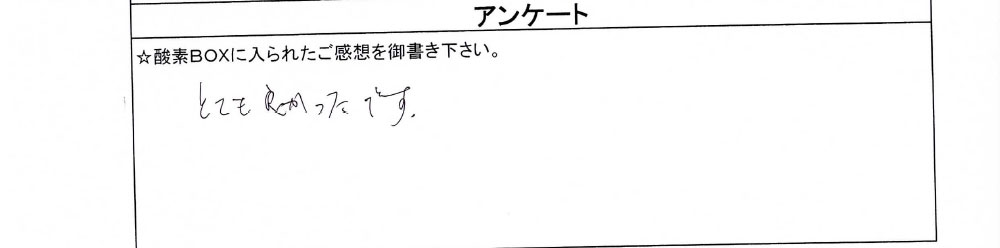 アンケート
☆酸素BOXに入られたご感想を御書き下さい。
とても良かったです.